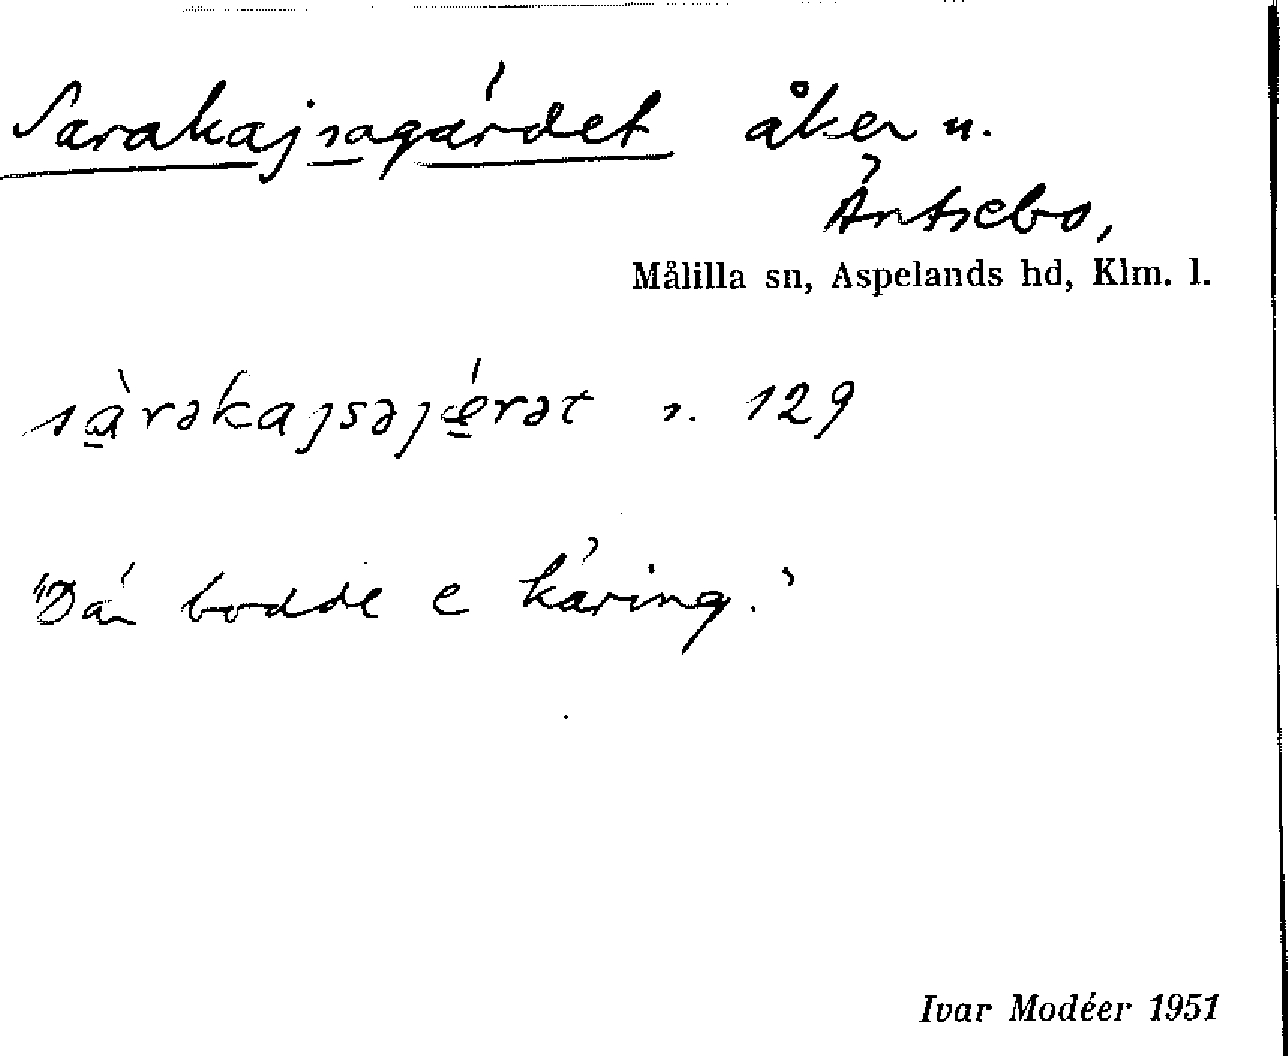 Sarakajsagärdet åker u.
Äntsebo,
Målilla sn, Aspelands hd, Klm. l.
sàrəkajsəjérət s. 129
"Där bodde e käring."
Ivar Modéer 1951